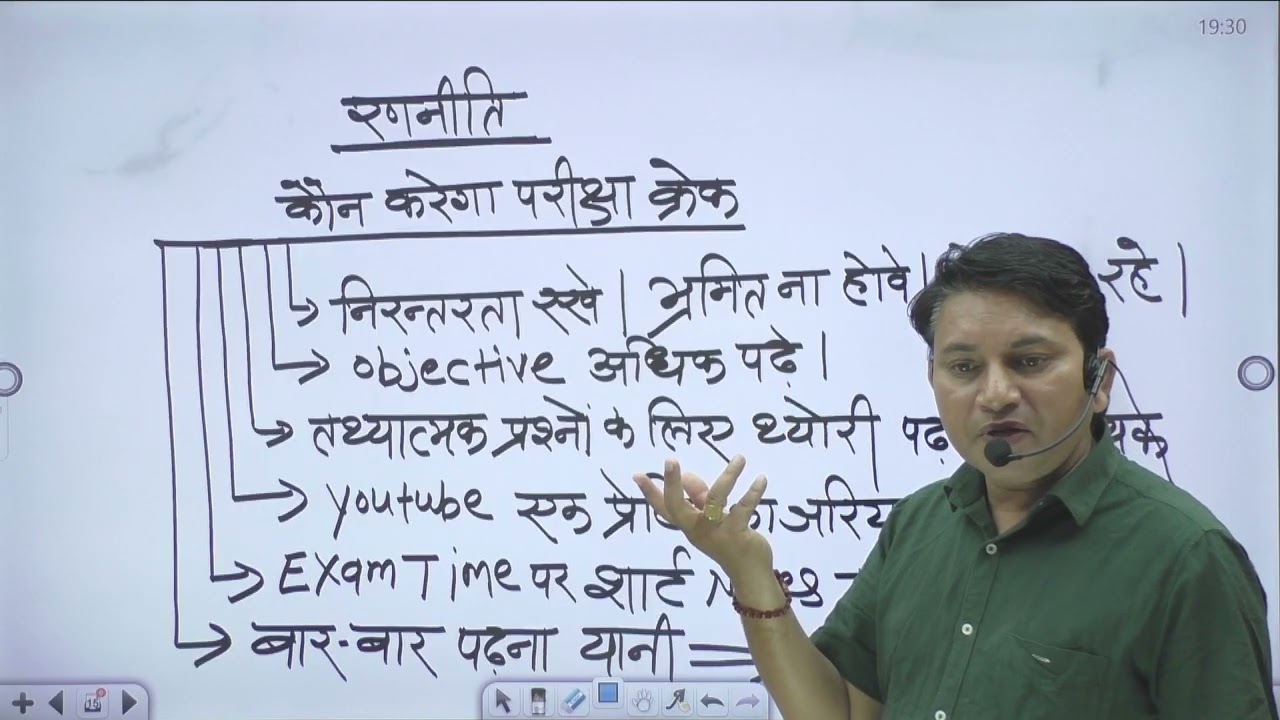 19:30
रणनीति
कौन करेगा परीक्षा क्रेक
निरन्तरता रखे। भ्रमित ना होवे। रहे।
objective अधिक पढ़े।
तथ्यात्मक प्रश्नों के लिए थ्योरी पढ़
youtube एक का जरिय
Exam Time पर शार्ट
बार-बार पढ़ना यानी =
15